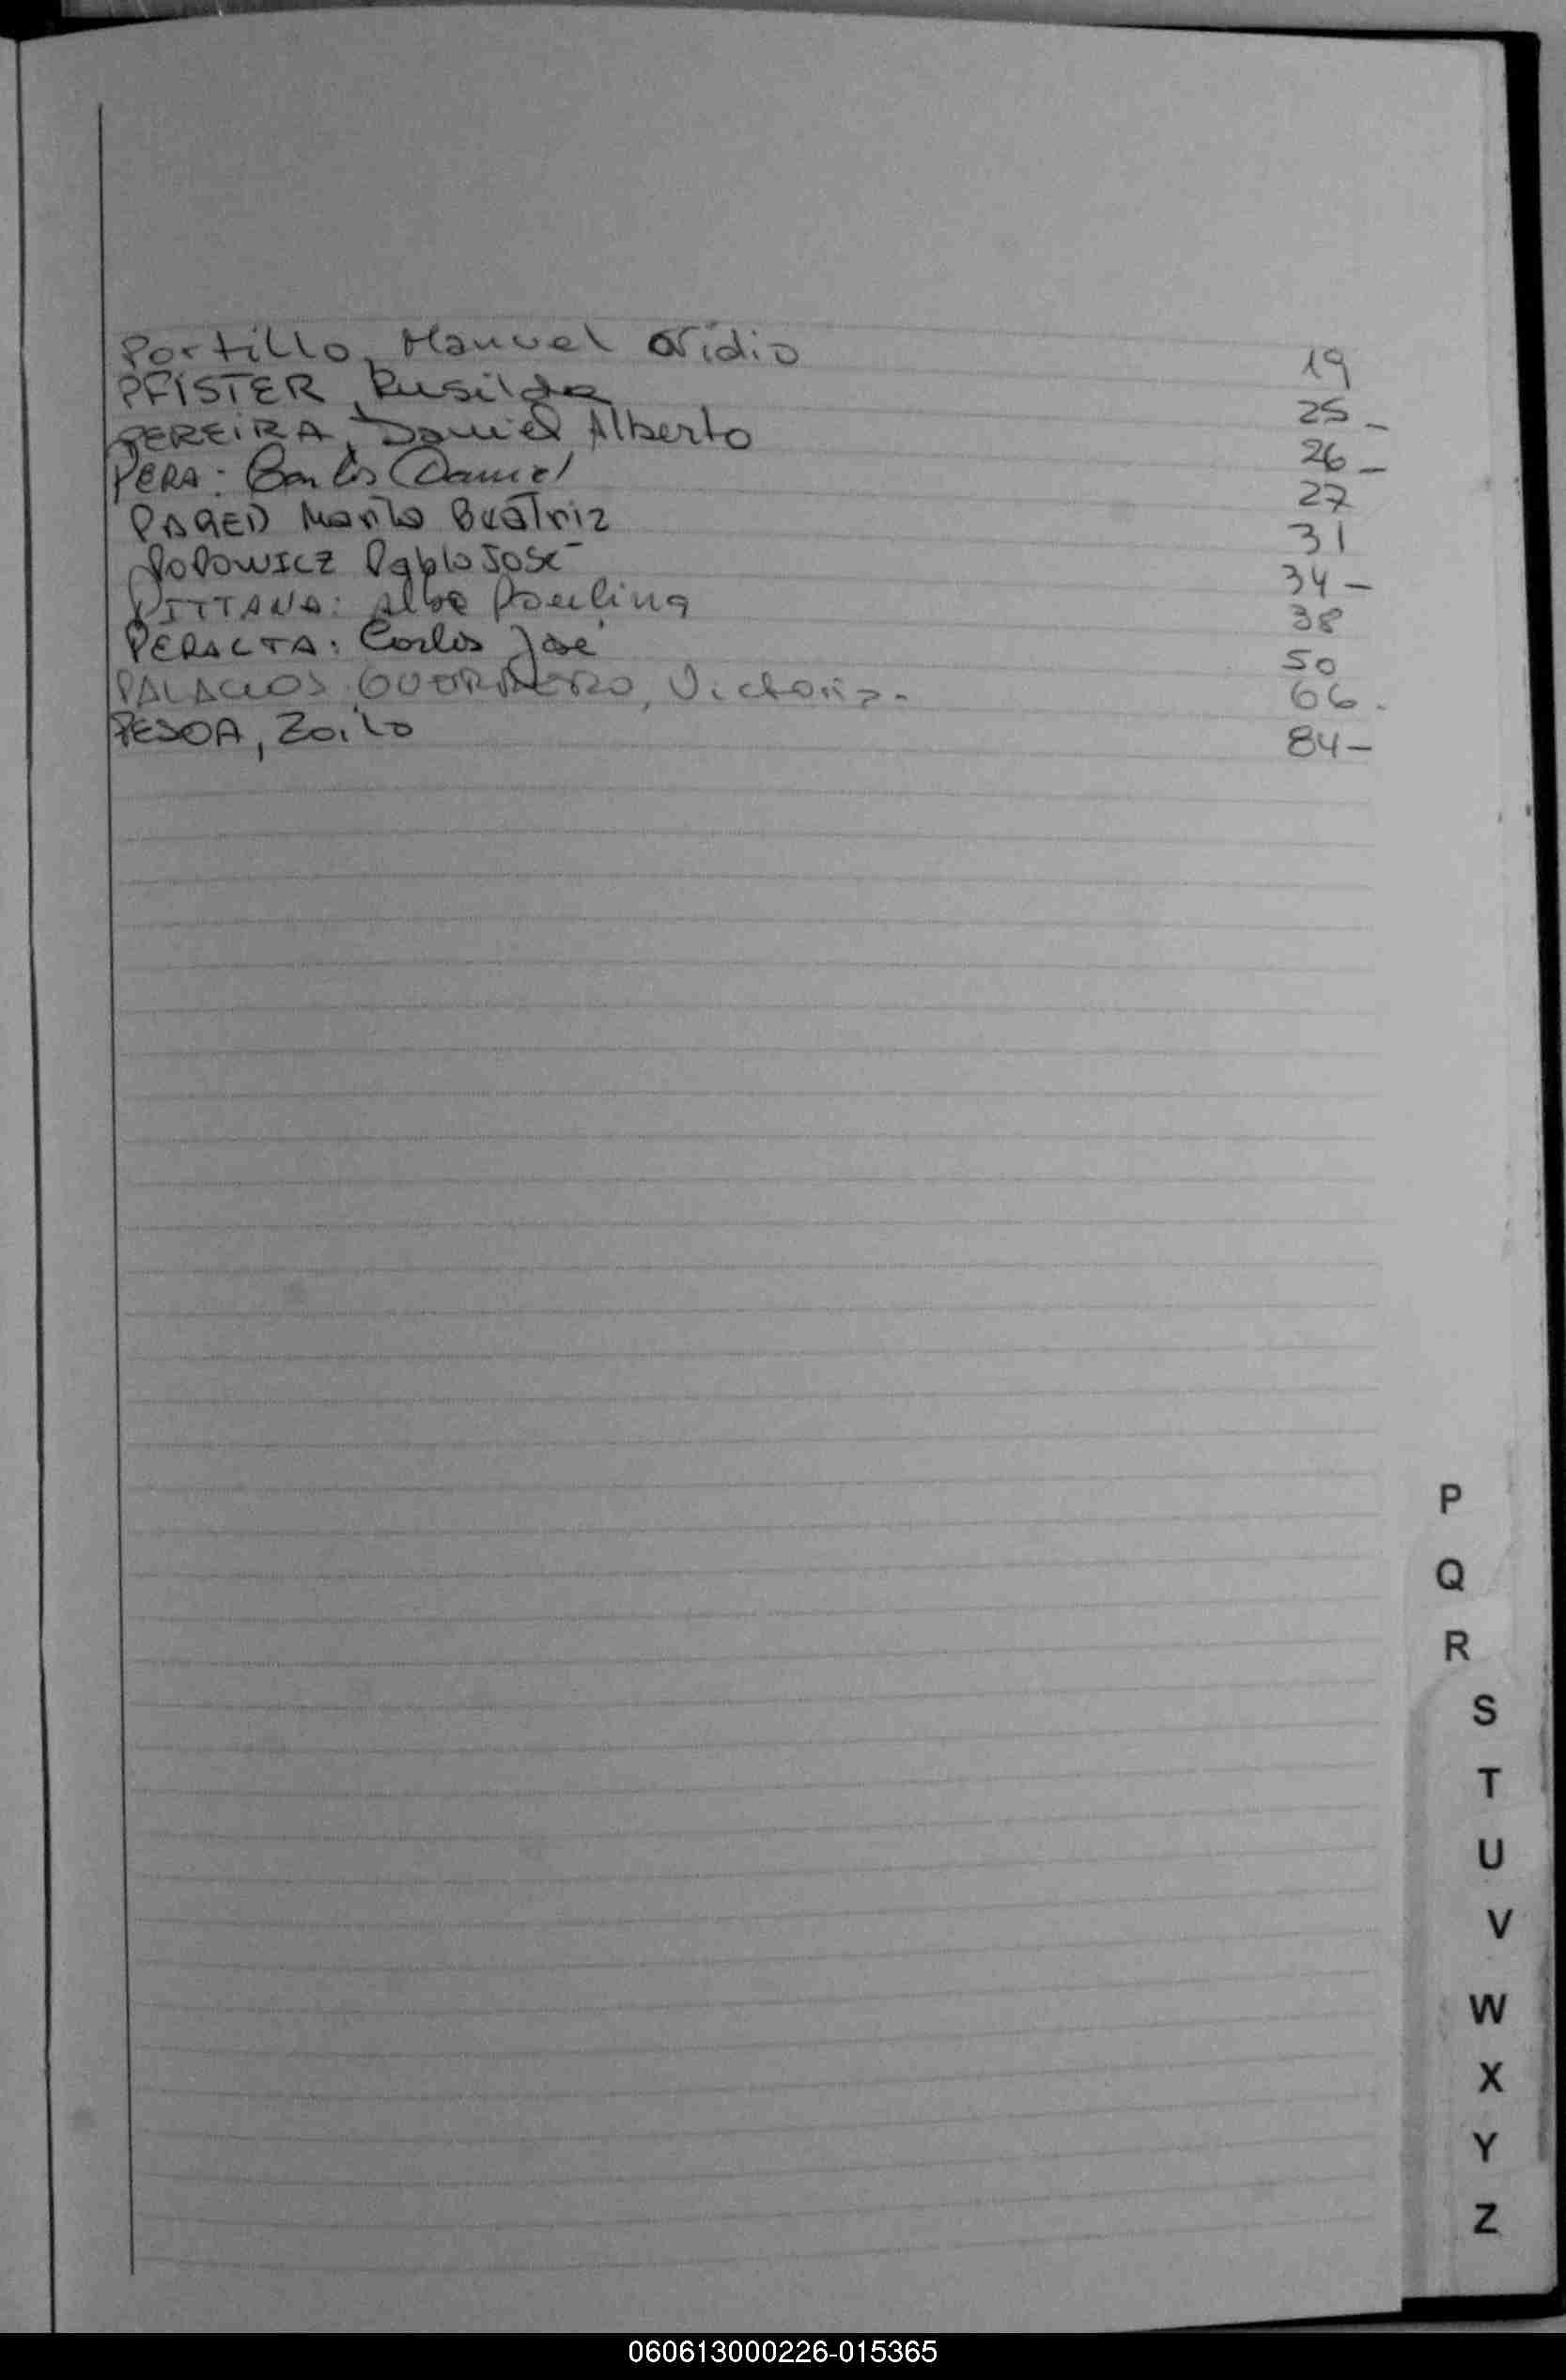 Portillo, Manuel Ovidio 19
PFISTER, Rusilda 25 -
PEREIRA, Daniel Alberto 26 -
PERA: Carlos Daniel 27
PARED Marta Beatriz 31
POPOWICZ Pablo José 34 -
PITTANA: Alba Paulina 38
PERALTA: Carlos José 50
PALACIOS GUERRERO, Victoria. 66.
PESOA, Zoilo 84 -
P
Q
R
S
T
U
V
W
X
Y
Z
060613000226-015365